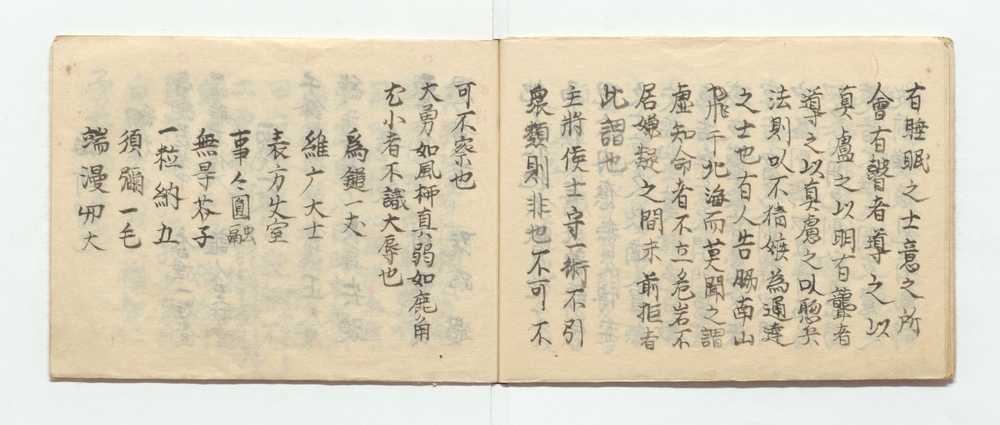 有睡眠之士意之所
會有瞽者導之以
真盧之以明有聾者
導之以真慮之以聰矣
法則以不猜嫉為通達
之士也有人告脇南山
飛于北海而莫聞之謂
虚知命者不立危岩不
居嫌疑之間未前拒者
此謂也
主將侫士守一術不引
衆類則非也不可不
可不察也
大勇如風柳真弱如鹿角
尤小者不識大辱也
為鎧一丈
維广大士
表方丈室
事々圓融
無导芥子
一粒納五
須彌一毛
端漫卌大